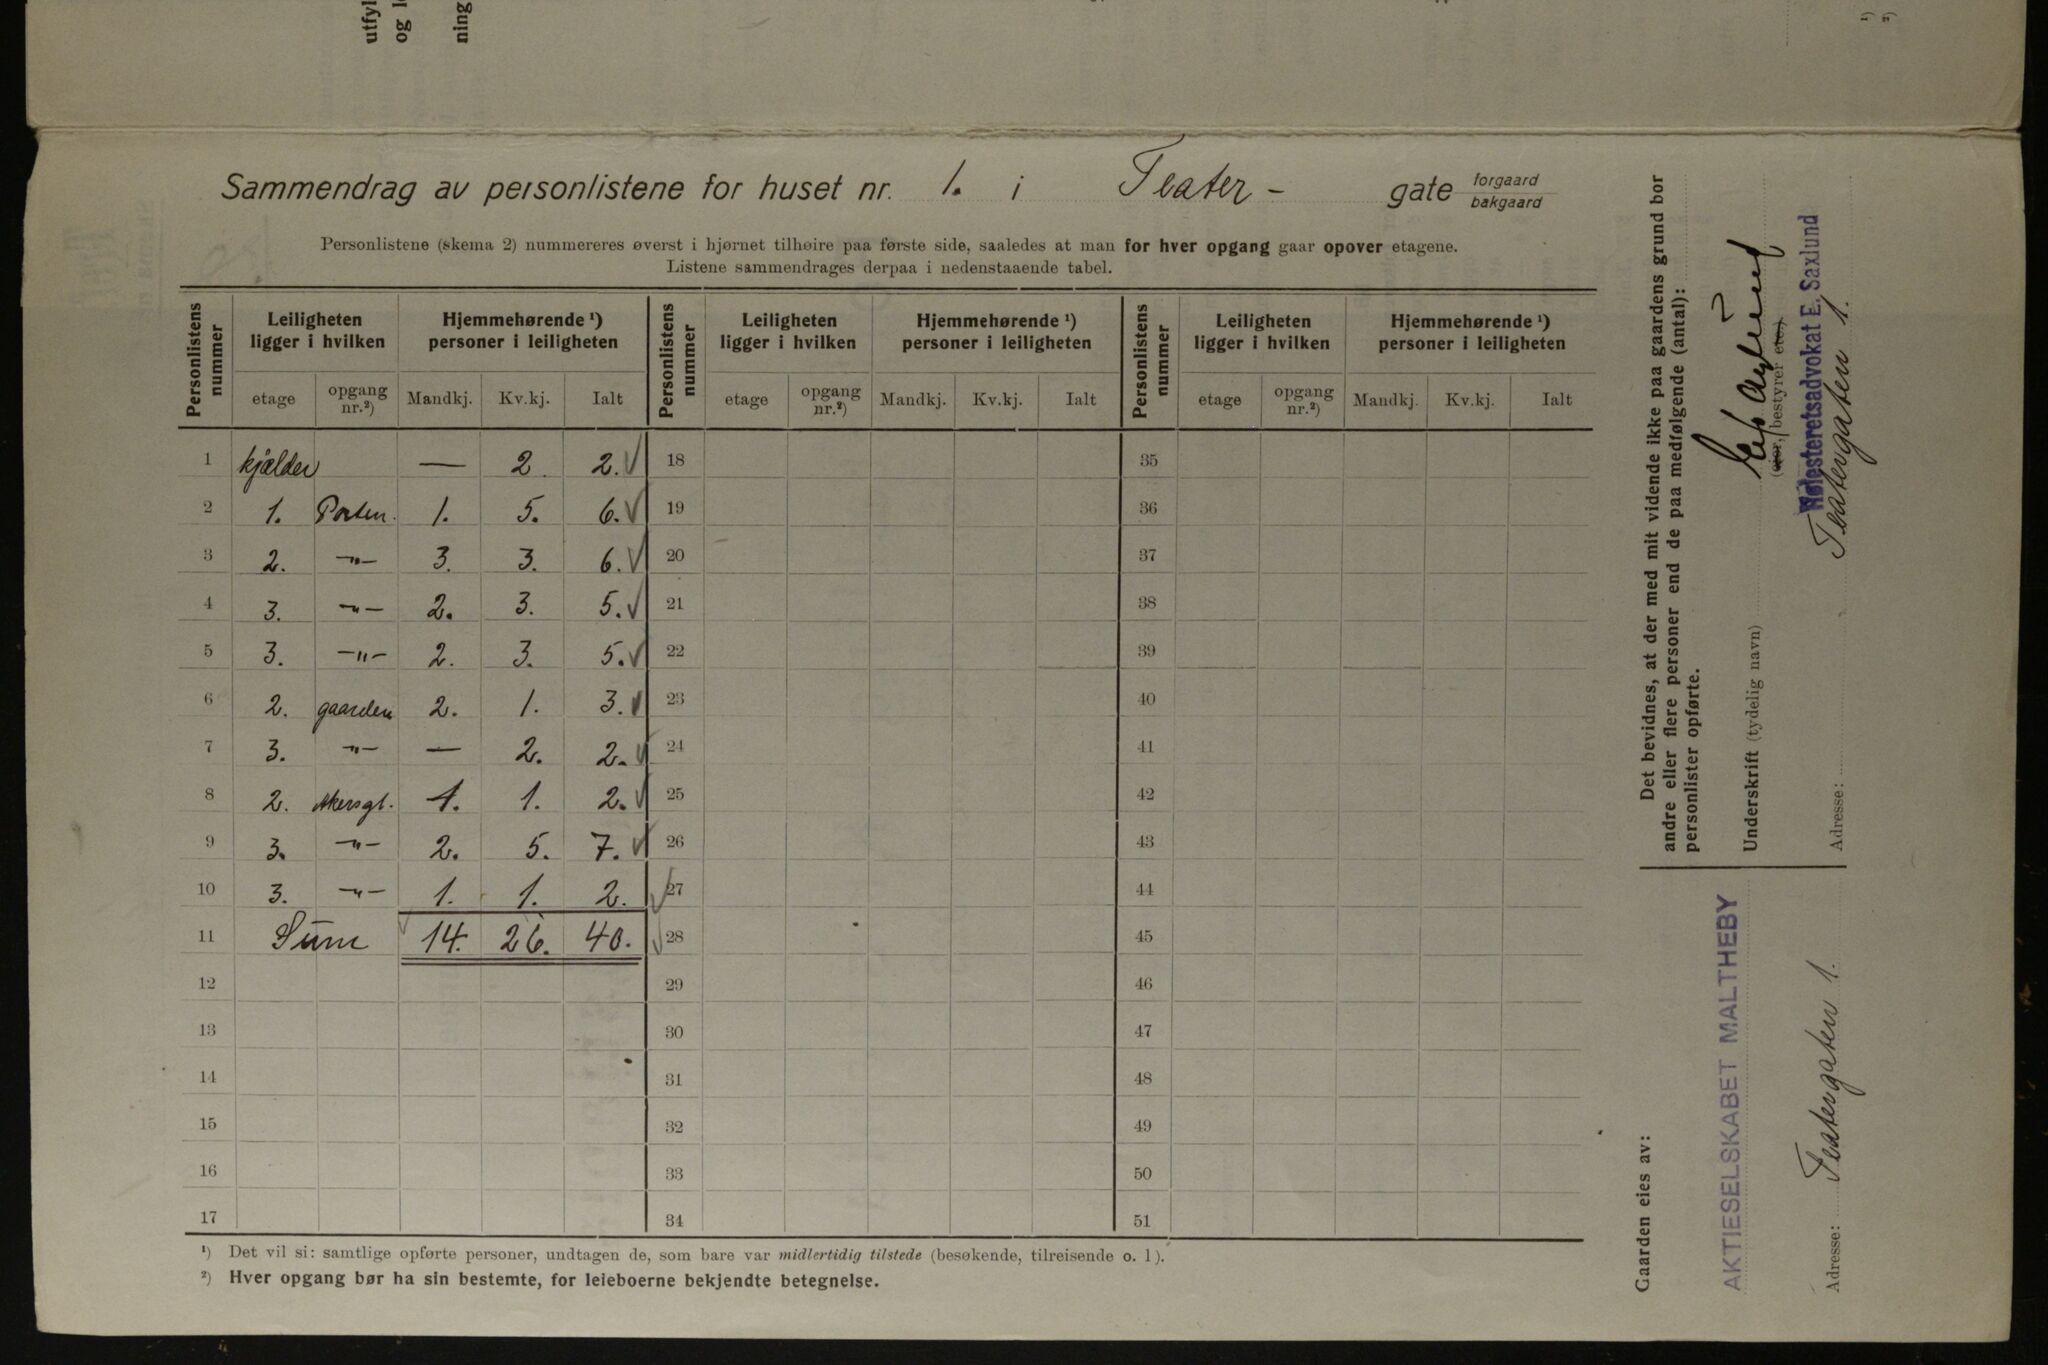 utfyl
og l
ning
¹)
²)
Sammendrag av personlistene for huset nr. 1. i Teater- gate forgaard bakgaard
Personlistene (skema 2) nummereres øverst i hjørnet tilhøire paa første side, saaledes at man for hver opgang gaar opover etagene.
Listene sammendrages derpaa i nedenstaaende tabel.
Personlistens nummer | Leiligheten ligger i hvilken | Hjemmehørende ¹) personer i leiligheten | Personlistens nummer | Leiligheten ligger i hvilken | Hjemmehørende ¹) personer i leiligheten | Personlistens nummer | Leiligheten ligger i hvilken | Hjemmehørende ¹) personer i leiligheten
etage | opgang nr.²) | Mandkj. | Kv.kj. | Ialt | etage | opgang nr.²) | Mandkj. | Kv.kj. | Ialt | etage | opgang nr.²) | Mandkj. | Kv.kj. | Ialt
1 kjælder — 2 2. ✓ 18 35
2 1. Porten. 1. 5. 6. ✓ 19 36
3 2. -"- 3. 3. 6. ✓ 20 37
4 3. -"- 2. 3. 5. ✓ 21 38
5 3. -"- 2. 3. 5. ✓ 22 39
6 2. gaarden 2. 1. 3. ✓ 23 40
7 3. -"- — 2. 2. ✓ 24 41
8 2. Akersgt. 1. 1. 2. ✓ 25 42
9 3. -"- 2. 5. 7. ✓ 26 43
10 3. -"- 1. 1. 2. ✓ 27 44
11 Sum ✓ 14. 26. 40. ✓ 28 45
12 29 46
13 30 47
14 31 48
15 32 49
16 33 50
17 34 51
¹) Det vil si: samtlige opførte personer, undtagen de, som bare var midlertidig tilstede (besøkende, tilreisende o. l).
²) Hver opgang bør ha sin bestemte, for leieboerne bekjendte betegnelse.
Det bevidnes, at der med mit vidende ikke paa gaardens grund bor
andre eller flere personer end de paa medfølgende (antal):
personlister opførte.
Underskrift (tydelig navn)
(eier, bestyrer etc.)
Høiesteretsadvokat E. Saxlund
Adresse: Teatergaten 1.
Gaarden eies av:
AKTIESELSKABET MALTHEBY
Adresse: Teatergaten 1.